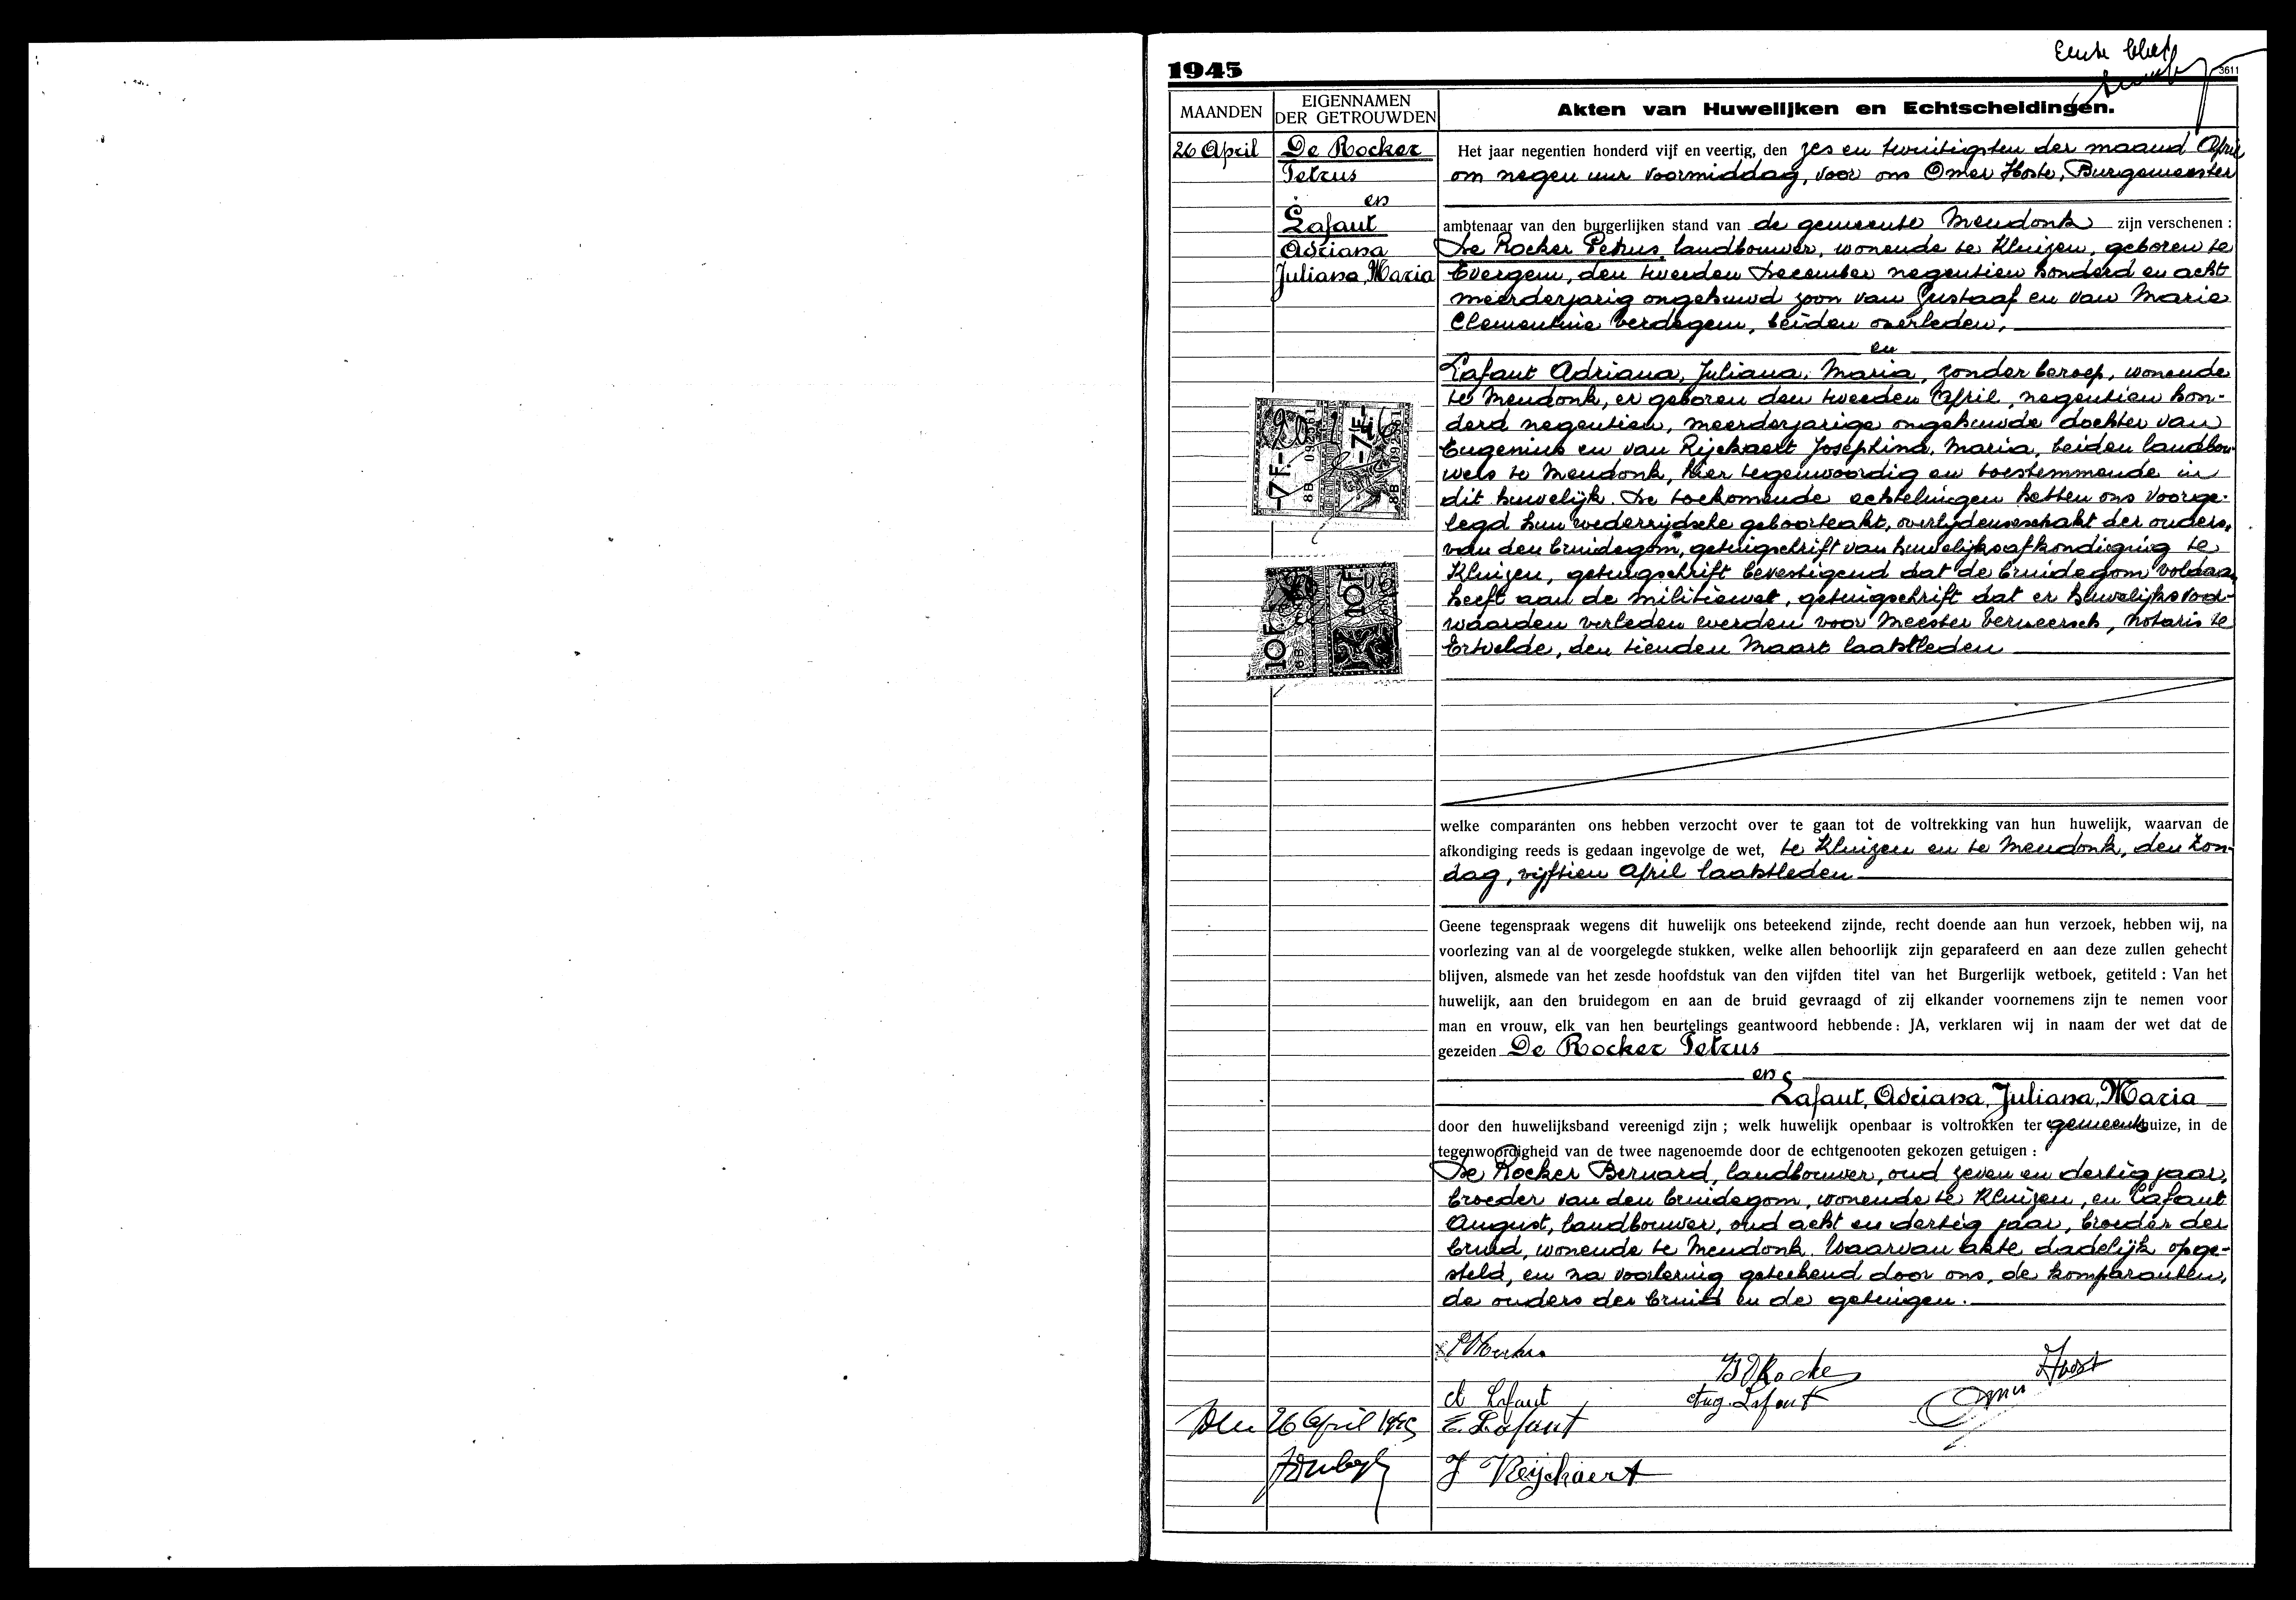 1945
Eerste blad
3611
MAANDEN
EIGENNAMEN
DER GETROUWDEN
Akten van Huwelijken en Echtscheidingen.
26 April
De Rocker
Petrus
en
Lafaut
Adriana
Juliana, Maria
Het jaar negentien honderd vijf en veertig, den zes en twintigsten der maand April
om negen uur voormiddag, voor ons Omer Hoste, Burgemeester
ambtenaar van den burgerlijken stand van de gemeente Mendonk zijn verschenen :
De Rocker Petrus, landbouwer, wonende te Kluizen, geboren te
Evergem, den tweeden December negentien honderd en acht
meerderjarig ongehuwd zoon van Gustaaf en van Marie
Clementine Verdegem, beiden overleden,
en
Lafaut Adriana, Juliana, Maria, zonder beroep, wonende
te Mendonk, er geboren den tweeden April, negentien hon-
derd negentien, meerderjarige ongehuwde dochter van
Eugenius en van Rijckaert Josephina, Maria, beiden landbou-
wers te Mendonk, hier tegenwoordig en toestemmende in
dit huwelijk. De toekomende echtelingen hebben ons voorge-
legd hun wederzijdsche geboorteakt, der ouders,
van den bruidegom, getuigschrift van huwelijksafkondiging te
Kluizen, getuigschrift bevestigend dat de bruidegom voldaan
heeft aan de militiewet, getuigschrift dat er huwelijksvoor-
waarden verleden werden voor Meester Vermeersch, notaris te
Ertvelde, den tienden Maart laatstleden
-7F.-
8B
-7F.-
8B
10F.
8B
10F.
welke comparanten ons hebben verzocht over te gaan tot de voltrekking van hun huwelijk, waarvan de
afkondiging reeds is gedaan ingevolge de wet, te Kluizen en te Mendonk, den Zon-
dag, vijftien April laatstleden
Geene tegenspraak wegens dit huwelijk ons beteekend zijnde, recht doende aan hun verzoek, hebben wij, na
voorlezing van al de voorgelegde stukken, welke allen behoorlijk zijn geparafeerd en aan deze zullen gehecht
blijven, alsmede van het zesde hoofdstuk van den vijfden titel van het Burgerlijk wetboek, getiteld : Van het
huwelijk, aan den bruidegom en aan de bruid gevraagd of zij elkander voornemens zijn te nemen voor
man en vrouw, elk van hen beurtelings geantwoord hebbende : JA, verklaren wij in naam der wet dat de
gezeiden De Rocker Petrus
en
Lafaut, Adriana, Juliana, Maria
door den huwelijksband vereenigd zijn ; welk huwelijk openbaar is voltrokken ter gemeentehuize, in de
tegenwoordigheid van de twee nagenoemde door de echtgenooten gekozen getuigen :
De Rocker Bernard, landbouwer, oud zeven en dertig jaar,
broeder van den bruidegom, wonende te Kluizen, en Lafaut
August, landbouwer, oud acht en dertig jaar, broeder der
bruid, wonende te Mendonk. Waarvan akte dadelijk opge-
steld, en na voorlezing geteekend door ons, de komparanten,
de ouders der bruid en de getuigen.
B De Rocke
Hoste
A Lafaut
Aug. Lafaut
Omer
Den 26 April 1945
E. Lafaut
J Reyckaert